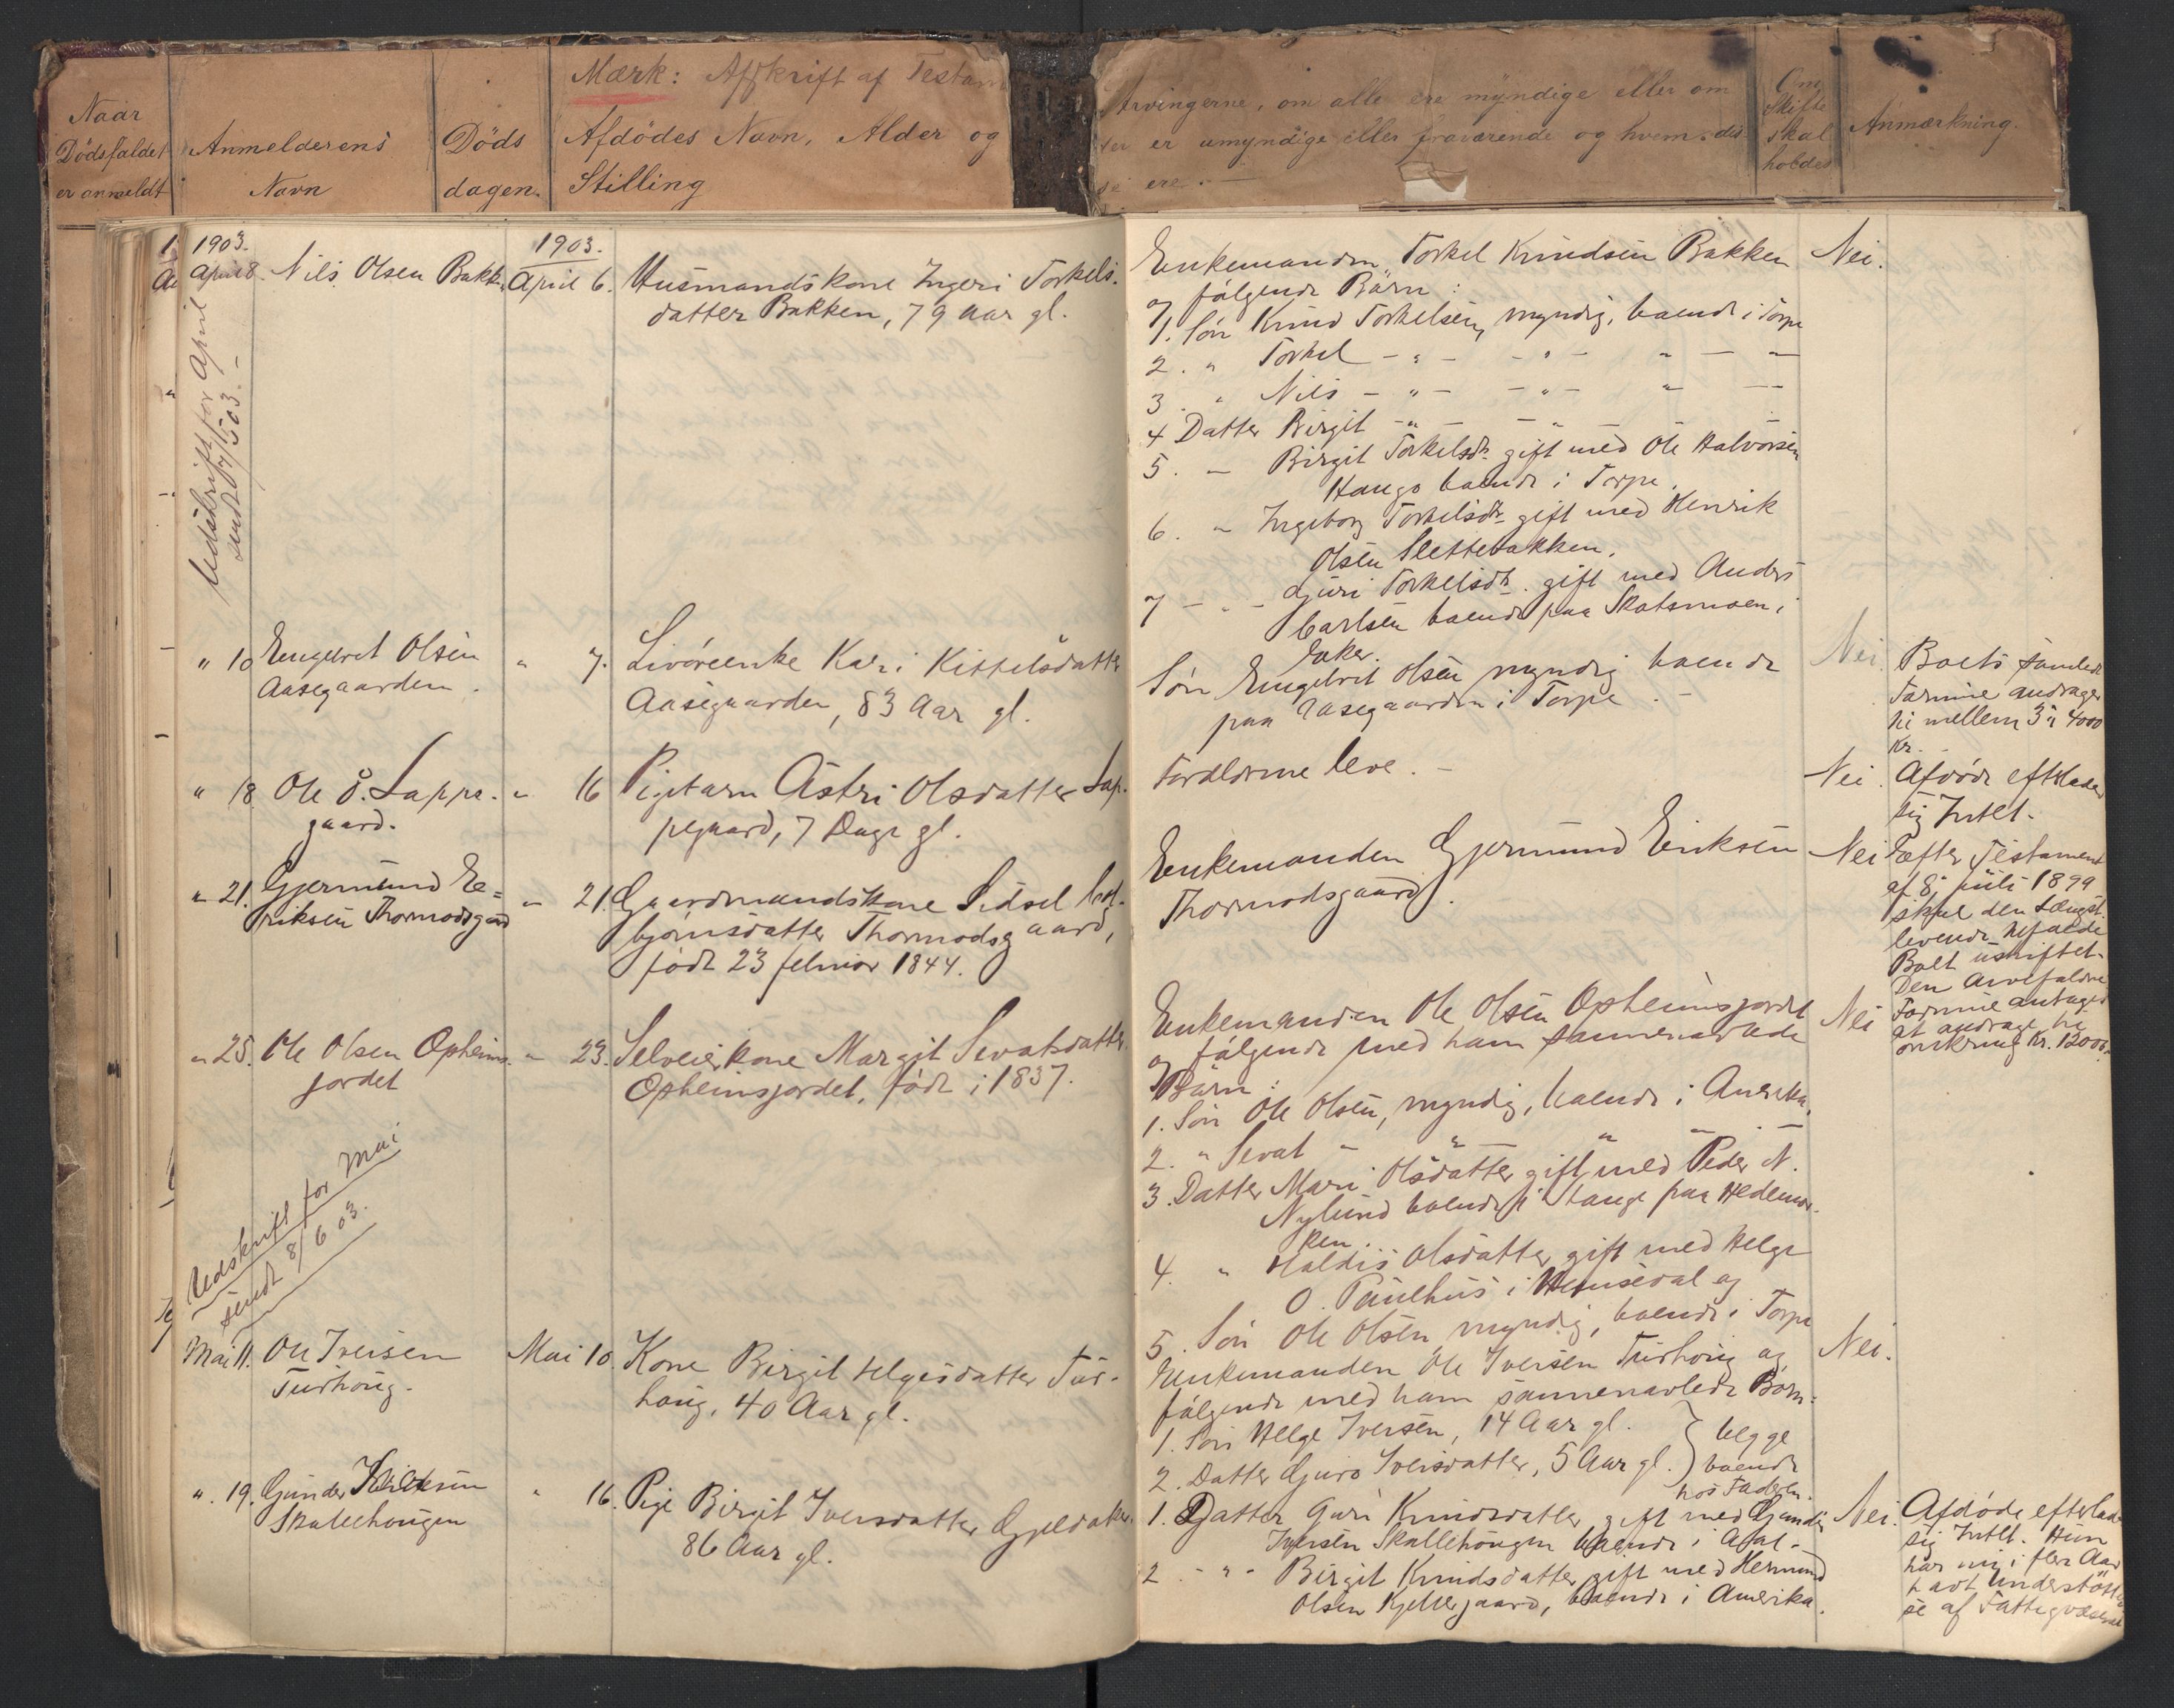 Mærk: Afskrift af Testam
Naar
Dödsfaldet
er anmeldt
Anmelderens
Navn
Döds
dagen.
Afdödes Navn, Alder og
Stilling
Arvingerne, om alle ere myndige eller om
er umyndige eller fraværende og hvem dis
se ere.
Om
Skifte
skal
holdes
Anmærkning.
1903.
April 8. Nils Olsen Bakk.
1903.
April 6.
Husmandskone Ingeri Torkels-
datter Bakken, 79 Aar gl.
Enkemanden Torkel Knudsen Bakken
og følgende Børn:
1. Søn Knud Torkelsen, myndig, boende i Torpe
2. " Torkel - " - - " - " - "
3. " Nils - " - - " - " -
4 Datter Birgit - " - - " -
5. - Birgit Torkelsdtr. gift med Ole Halvorsen
Haugo boende i Torpe.
6. " Ingeborg Torkelsdtr. gift med Henrik
Olsen Slettebakken.
7 - " - Guri Torkelsdtr. gift med Anders
Carlsen boende paa Skotsmoen i
Eker.
Nei.
Udskrift for April
sendt 07/5 03. -
" 10 Engebret Olsen
Aasegaarden.
" 7. Livøreenke Kari Kittelsdatter
Aasegaarden, 83 Aar gl.
Søn Engebrit Olsen myndig boende
paa Aasegaarden i Torpe. -
Nei.
Boets samlede
Formue andrager
til mellem 3 à 4000
Kr.
" 18. Ole O. Lappe-
gaard.
" 16 Pigebarn Astri Olsdatter Lap-
pegaard, 7 Dage gl.
Forældrene leve. -
Nei.
Afdøde efterlader
sig Intet.
" 21. Gjermund E=
riksen Thormodsgård
" 21. Gaardmandskone Sidsel Col-
bjørnsdatter Thormodsgaard,
født 23 februar 1844.
Enkemanden Gjermund Eriksen
Thormodsgaard.
Nei
Efter Testament
af 8. juli 1899
skal den Længst-
levende
Boet uskiftet.
Den Arvefaldne
Formue antages
at andrage til
omkring Kr. 12000.
" 25. Ole Olsen Opheims-
jordet
" 23. Selveierkone Margit Sevatsdatter
Opheimsjordet, født i 1837.
Enkemanden Ole Olsen Opheimsjordet
og følgende med ham sammenavlede
Børn:
1. Søn Ole Olsen, myndig, boende i Amerika.
2. " Sevat - " - " - " - " -
3. Datter Mari Olsdatter gift med Peder N.
Nylund boende i Stange paa Hedemar-
ken.
4. " Haldis Olsdatter gift med Helge
O. Paulhus i Hemsedal og
5. Søn Ole Olsen myndig, boende i Torpe
Nei
Udskrift for Mai
sendt 8/6 03.
Mai 11. Ole Iversen
Turhoug.
Mai 10. Kone Birgit Helgesdatter Tur-
houg, 40 Aar gl.
Enkemanden Ole Iversen Turhoug og
følgende med ham sammenavlede Børn:
1. Søn Helge Iversen, 14 Aar gl.
2. Datter Guro Iversdatter, 5 Aar gl.
begge
boende
hos Faderen.
Nei.
" 19. Gunder
Skallehougen
" 16. Pige Birgit Iversdatter Gjeldaker
86 Aar gl.
1. Datter Guri Knudsdatter gift med Gunder
Iversen Skallehougen boende i Aal. -
2 - " - Birgit Knudsdatter gift med Hermund
Olsen Kjellergaard, boende i Amerika.
Nei.
Afdøde efterlad
sig Intet. Hun
har nu i flere Aar
havt Understøttel
se af Fattigvæsenet